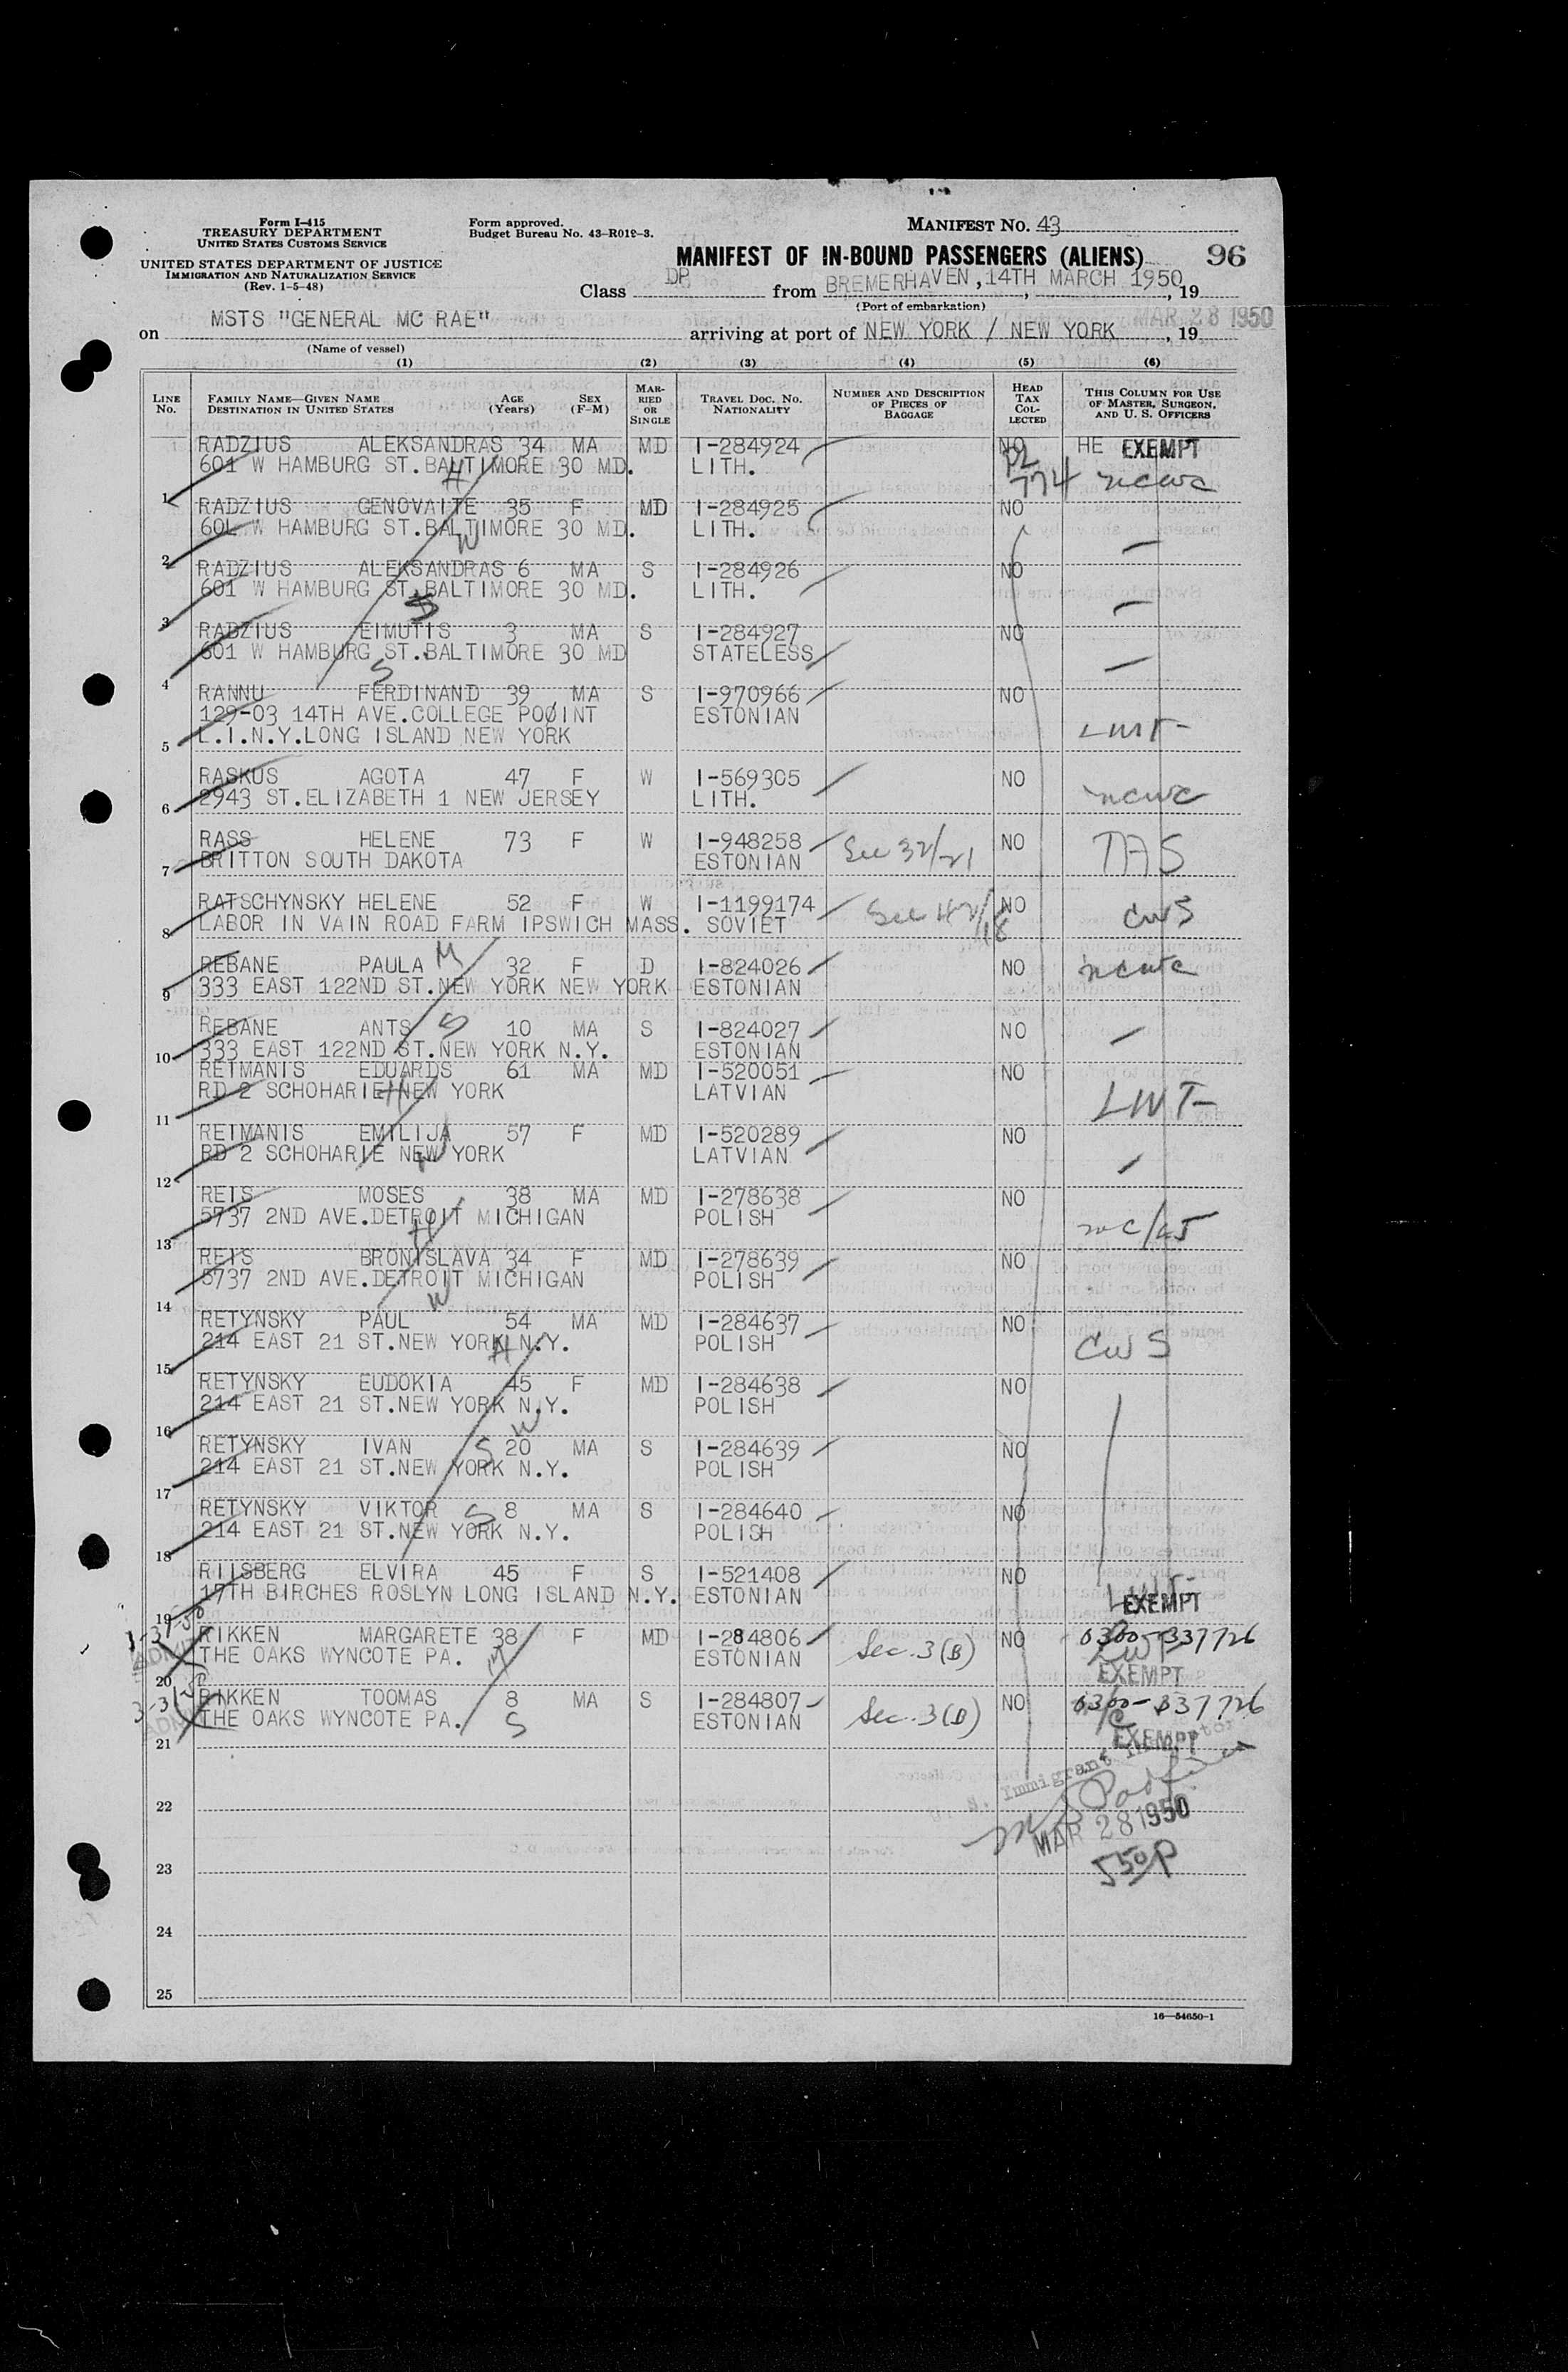 Form I-415
TREASURY DEPARTMENT
UNITED STATES CUSTOMS SERVICE
UNITED STATES DEPARTMENT OF JUSTICE
IMMIGRATION AND NATURALIZATION SERVICE
(Rev. 1-5-48)
Form approved.
Budget Bureau No. 43-R012-3.
MANIFEST NO. 43
MANIFEST OF IN-BOUND PASSENGERS (ALIENS) 96
Class DP from BREMERHAVEN, 14TH MARCH 1950, 19
(Port of embarkation)
MAR 28 1950
on MSTS "GENERAL MC RAE" arriving at port of NEW YORK / NEW YORK, 19
(Name of vessel)
(1) (2) (3) (4) (5) (6)
LINE NO. FAMILY NAME—GIVEN NAME DESTINATION IN UNITED STATES AGE (Years) SEX (F-M) MARRIED OR SINGLE TRAVEL DOC. NO. NATIONALITY NUMBER AND DESCRIPTION OF PIECES OF BAGGAGE HEAD TAX COLLECTED THIS COLUMN FOR USE OF MASTER, SURGEON, AND U. S. OFFICERS
RADZIUS ALEKSANDRAS 34 MA MD I-284924 NO HE EXEMPT
601 W HAMBURG ST.BALTIMORE 30 MD. LITH. PL
H 774 ncwc
1
RADZIUS GENOVAITE 35 F MD I-284925 NO
601 W HAMBURG ST.BALTIMORE 30 MD. LITH.
W —
2
RADZIUS ALEKSANDRAS 6 MA S I-284926 NO
601 W HAMBURG ST.BALTIMORE 30 MD. LITH.
S —
3
RADZIUS EIMUTIS 3 MA S I-284927 NO
601 W HAMBURG ST.BALTIMORE 30 MD STATELESS
S —
4
RANNU FERDINAND 39 MA S I-970966 NO
129-03 14TH AVE.COLLEGE POØINT ESTONIAN
5 L.I.N.Y.LONG ISLAND NEW YORK LWF-
RASKUS AGOTA 47 F W I-569305 NO
6 2943 ST.ELIZABETH 1 NEW JERSEY LITH. ncwc
RASS HELENE 73 F W I-948258 See 32/21 NO TAS
7 BRITTON SOUTH DAKOTA ESTONIAN
RATSCHYNSKY HELENE 52 F W I-1199174 See 42/18 NO CWS
8 LABOR IN VAIN ROAD FARM IPSWICH MASS. SOVIET
REBANE PAULA M 32 F D I-824026 NO ncwc
9 333 EAST 122ND ST.NEW YORK NEW YORK ESTONIAN
REBANE ANTS S 10 MA S I-824027 NO —
10 333 EAST 122ND ST.NEW YORK N.Y. ESTONIAN
REIMANIS EDUARDS 61 MA MD I-520051 NO
RD 2 SCHOHARIE NEW YORK H LATVIAN LWF-
11
REIMANIS EMILIJA 57 F MD I-520289 NO
RD 2 SCHOHARIE NEW YORK W LATVIAN —
12
REIS MOSES 38 MA MD I-278638 NO
5737 2ND AVE.DETROIT MICHIGAN POLISH
13 H
REIS BRONISLAVA 34 F MD I-278639 NO
5737 2ND AVE.DETROIT MICHIGAN POLISH
14 W
RETYNSKY PAUL 54 MA MD I-284637 NO
214 EAST 21 ST.NEW YORK N.Y. H POLISH CWS
15
RETYNSKY EUDOKIA 45 F MD I-284638 NO
214 EAST 21 ST.NEW YORK N.Y. POLISH
16 W
RETYNSKY IVAN S 20 MA S I-284639 NO
214 EAST 21 ST.NEW YORK N.Y. POLISH
17
RETYNSKY VIKTOR S 8 MA S I-284640 NO
214 EAST 21 ST.NEW YORK N.Y. POLISH
18
RIISBERG ELVIRA 45 F S I-521408 NO
17TH BIRCHES ROSLYN LONG ISLAND N.Y. ESTONIAN EXEMPT
19
RIKKEN MARGARETE 38 F MD I-284806 Sec. 3(B) NO 0300-337726
THE OAKS WYNCOTE PA. M ESTONIAN
20 EXEMPT
RIKKEN TOOMAS 8 MA S I-284807 Sec. 3(B) NO 0300-337726
THE OAKS WYNCOTE PA. S ESTONIAN
21 EXEMPT
U. S. Immigrant Inspector
22
MAR 28 1950
550P
23
24
25
16—54650-1